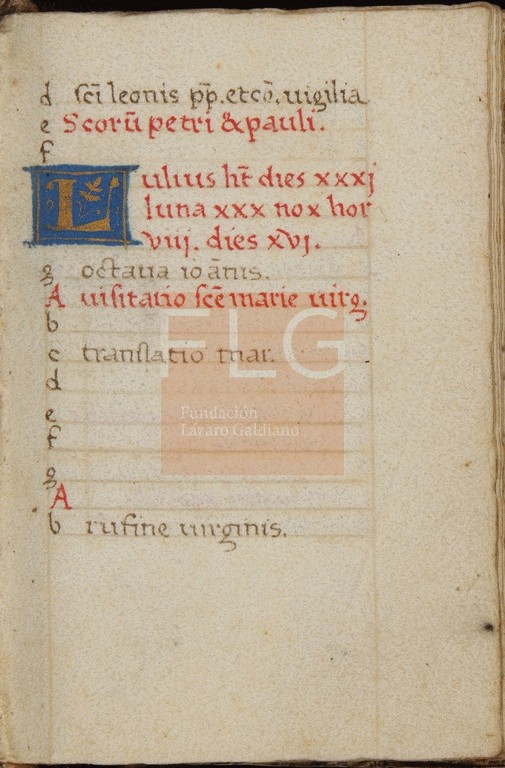 d sc̄i leonis pp̄. et cō. uigilia
e Scorū petri & pauli.
f
Lulius ht̄ dies xxxj
luna xxx nox hor
viij. dies xvj.
g octaua ioānis.
A uisitatio sc̄e marie uirg.
b
c translatio mar.
d
e
f
g
A
b rufine uirginis.
FLG
Fundación
Lázaro Galdiano